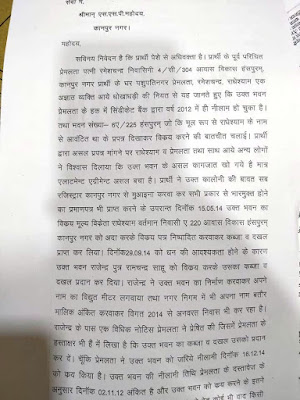 सेवा में,
श्रीमान् एस.एस.पी.महोदय,
कानपुर नगर।
महोदय,
सविनय निवेदन है कि प्रार्थी पेशे से अधिवक्ता है। प्रार्थी के पूर्व परिचित
प्रेमलता पत्नी रमेशचन्द्र निवासिनी 4/सी/304 आवास विकास हंसपुरम्,
कानपुर नगर प्रार्थी के घर पशुपतिनगर प्रेमलता, रमेशचन्द्र, राधेश्याम एक
अज्ञात व्यक्ति आये धोखाधड़ी की नियत से यह जानते हुए कि उक्त भवन
प्रेमलता के हक में सिंडीकेट बैंक द्वारा वर्ष 2012 में ही नीलाम हो चुका है।
तथा भवन संख्या- ए/225 हंसपुरम् जो कि मूल रूप से राधेश्याम के नाम
से आवंटित था के प्रपत्र दिखाकर विक्रय करने की बातचीत चलाई। प्रार्थी
द्वारा असल प्रपत्र मांगने पर राधेश्याम व प्रेमलता तथा साथ आये अन्य लोगों
ने विश्वास दिलाया कि उक्त भवन के असल कागजात खो गये है मात्र
एलाटमेन्ट एग्रीमेन्ट असल बचा है। प्रार्थी ने उक्त कालोनी की बावत सब
रजिस्ट्रार कानपुर नगर से मुआइना करवा कर सभी प्रकार से भारमुक्त होने
का प्रमाणपत्र भी प्राप्त करने के उपरान्त दिनांक 15.05.14 उक्त भवन का
विक्रय मूल्य विक्रेता राधेश्याम वर्तमान निवासी ए 220 आवास विकास हंसपुरम्
कानपुर नगर को अदा करके विक्रय पत्र निष्पादित करवाकर कब्जा व दखल
प्राप्त कर लिया। दिनांक29.09.14 को धन की आवश्यकता होने के कारण
उक्त भवन राजेन्द्र पुत्र रामचन्द्र साहू को विक्रय करके उसका कब्जा व
दखल प्रदान कर दिया। राजेन्द्र ने उक्त भवन का निर्माण करवाकर अपने
नाम का विद्युत मीटर लगवाया तथा नगर निगम मे भी अपना नाम बतौर
मालिक अंकित करवाकर विगत 2014 से अनवरत निवास भी कर रहा है।
राजेन्द्र के पास एक विधिक नोटिस प्रेमलता ने प्रेषित की जिसमें प्रेमलता के
हस्ताक्षर भी हैं में लिखा है कि उक्त भवन का कब्जा व दखल उसको प्रदान
कर दें। चूँकि प्रेमलता ने उक्त भवन को जरिये नीलामी दिनाँक 16.12.14
को क्रय किया है। उक्त भवन की नीलामी तिथि प्रेमलता के दस्तावेज के
अनुसार दिनाँक 02.11.12 अंकित है और उक्त भवन को क्रय करने के इतने